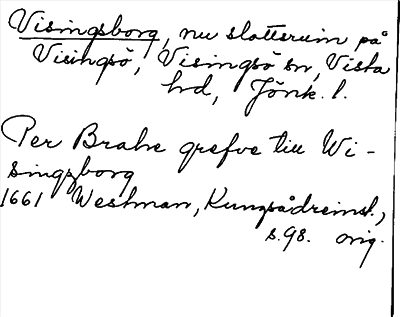 Visingsborg, nu slottsruin på
Visingsö, Visingsö sn, Vista
hd, Jönk. l.
Per Brahe grefve till Wi-
singzborg
1661 Westman, Kungsådreinst.,
s. 98. orig.